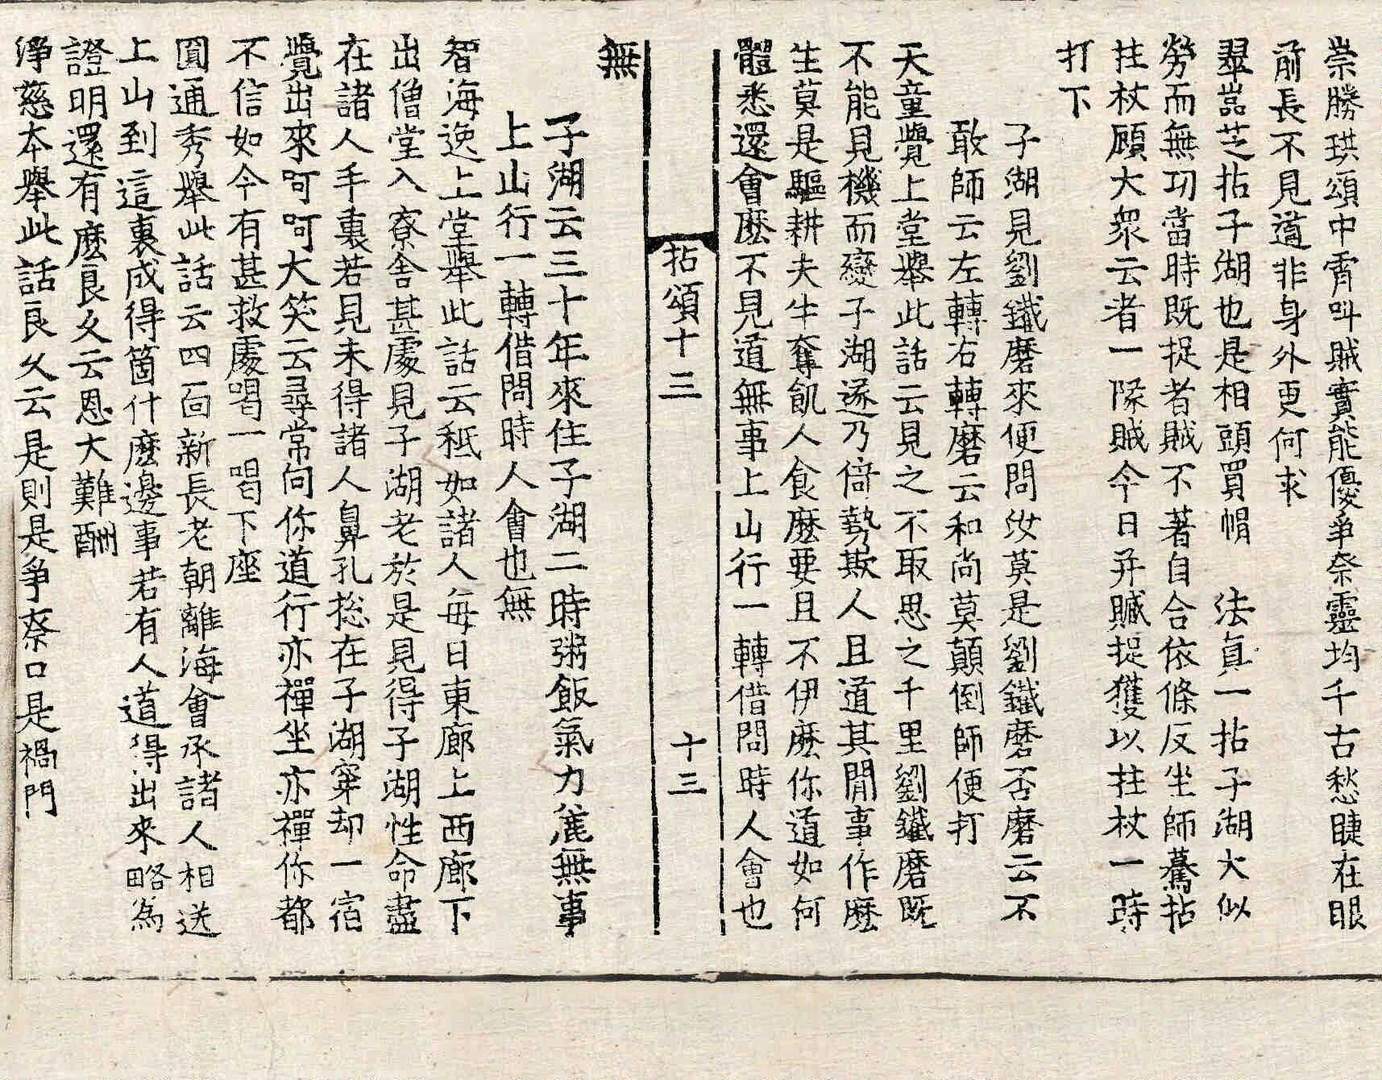 崇勝珙頌中霄叫賊實能優爭奈靈均千古愁睫在眼
前長不見道非身外更何求
翠嵓芝拈子湖也是相頭買帽　法真一拈子湖大似
勞而無功當時既捉者賊不著自合依條反坐師驀拈
拄杖顧大衆云者一隊賊今日并贓捉獲以拄杖一時
打下
子湖見劉鐵磨來便問汝莫是劉鐵磨否磨云不
敢師云左轉右轉磨云和尚莫顛倒師便打
天童覺上堂舉此話云見之不取思之千里劉鐵磨既
不能見機而變子湖遂乃倚勢欺人且道其閒事作麽
生莫是驅耕夫牛奪飢人食麽要且不伊麽你道如何
體悉還會麽不見道無事上山行一轉借問時人會也
拈頌十三　十三
無
子湖云三十年來住子湖二時粥飯氣力麁無事
上山行一轉借問時人會也無
智海逸上堂舉此話云秖如諸人每日東廊上西廊下
出僧堂入寮舍甚處見子湖老於是見得子湖性命盡
在諸人手裏若見未得諸人鼻孔捴在子湖窠却一宿
覺出來呵呵大笑云尋常向你道行亦禪坐亦禪你都
不信如今有甚救處喝一喝下座
圓通秀舉此話云四面新長老朝離海會承諸人相送
上山到這裏成得箇什麽邊事若有人道得出來略爲
證明還有麽良久云恩大難酬
淨慈本舉此話良久云是則是爭奈口是禍門